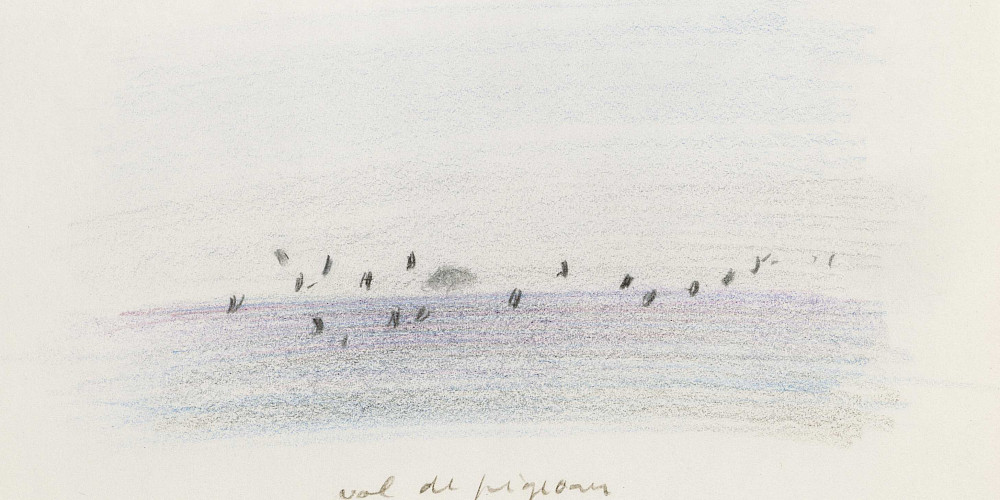 vol de pigeons